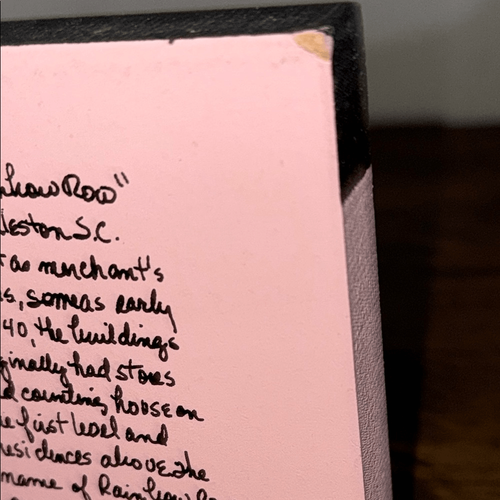 nbow Row"
leston S.C.
as merchant's
s, some as early
40, the buildings
ginally had stores
d counting house on
e first level and
residences above. The
name of Rainbow R